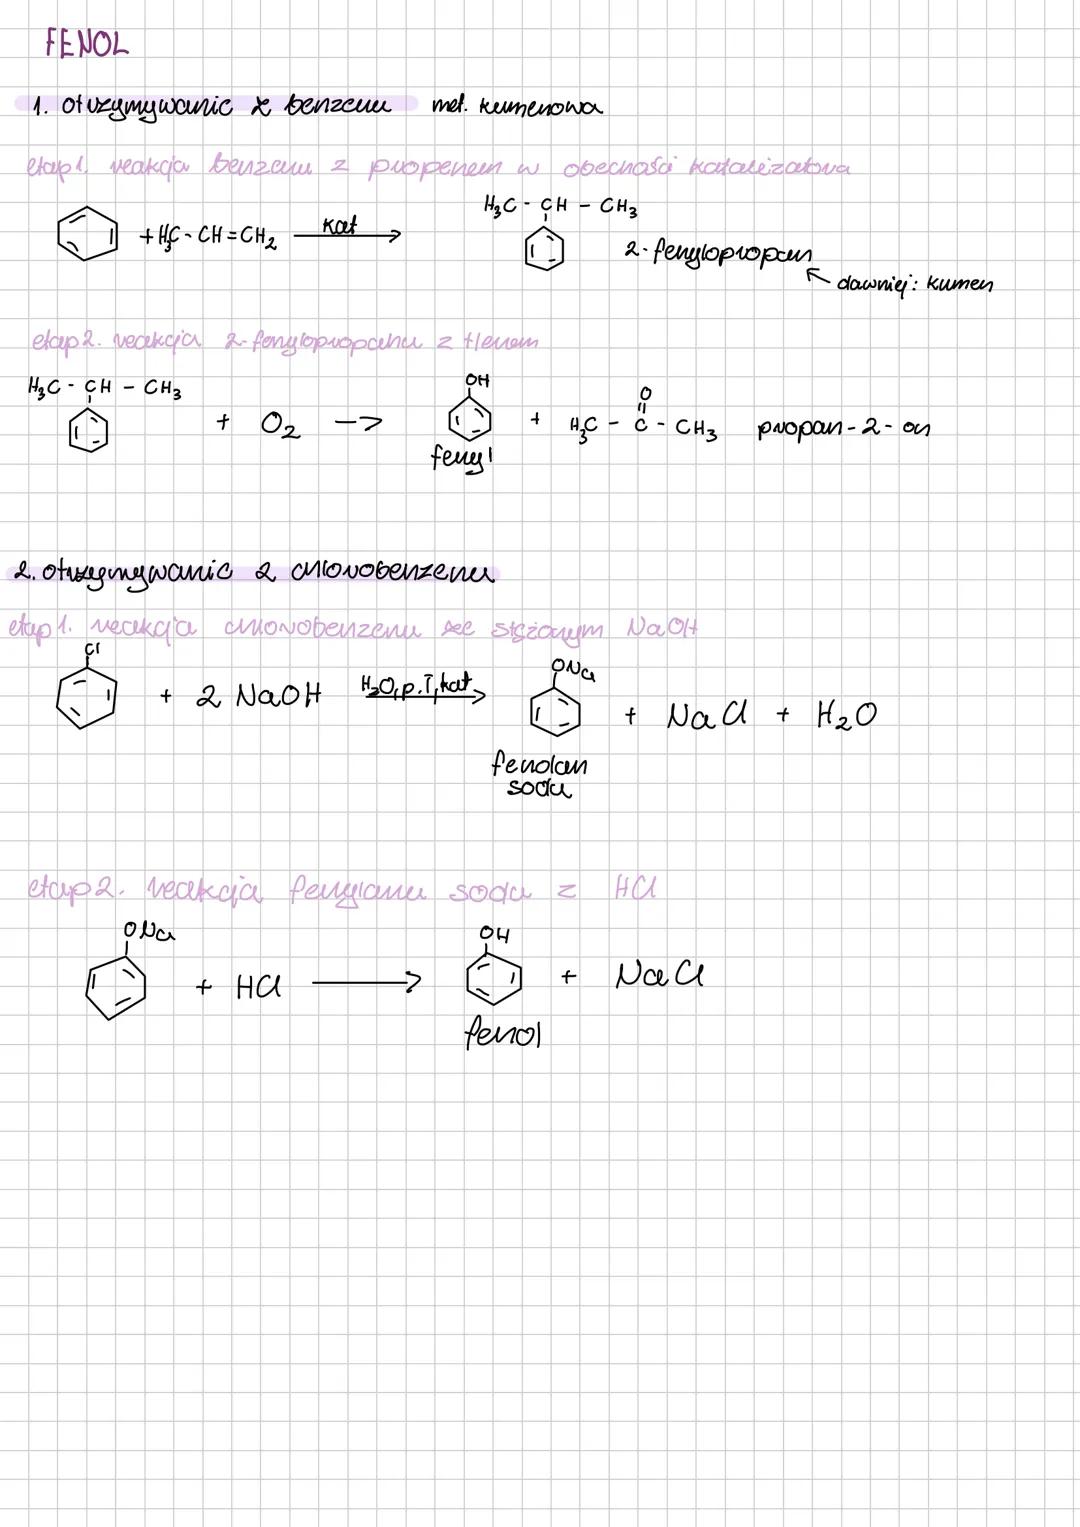 FENOL
1. otrzymywanie z benzenu met. kumenowa
etap 1. reakcja benzenu z propenem w obecności katalizatora
+ H₃C - CH = CH₂ kat → H₃C - CH - CH₃
2-fenylopropan
↖ dawniej: kumen
etap 2. reakcja 2-fenylopropanu z tlenem
H₃C - CH - CH₃ + O₂ -> OH + H₃C - C - CH₃ propan-2-on
O
fenyl
2. otrzymywanie z chlorobenzenu
etap 1. reakcja chlorobenzenu ze stężonym NaOH
Cl + 2 NaOH H₂O, p. T, kat. → ONa + NaCl + H₂O
fenolan
sodu
etap 2. reakcja fenylanu sodu z HCl
ONa + HCl → OH + NaCl
fenol